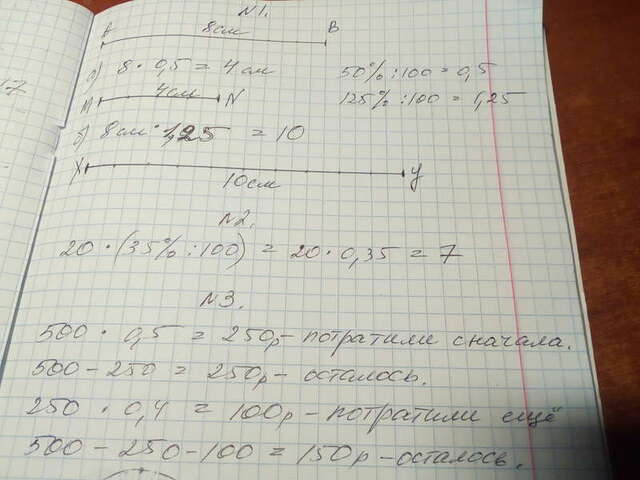 17
№1.
A 8см B
а) 8 · 0,5 = 4 см 50% : 100 = 0,5
M 4см N 125% : 100 = 1,25
б) 8см · 1,25 = 10
X 10см У
№2.
20 · (35% : 100) = 20 · 0,35 = 7
№3.
500 · 0,5 = 250р - потратили сначала.
500 - 250 = 250р - осталось.
250 · 0,4 = 100р - потратили ещё
500 - 250 - 100 = 150р - осталось.